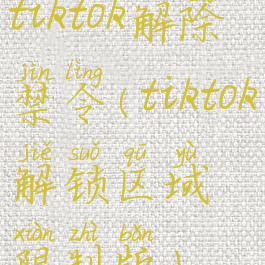 tiktok解除
jìn lìng
禁令(tiktok
jiě suǒ qū yù
解锁区域
xiàn zhì bǎn
限制版)